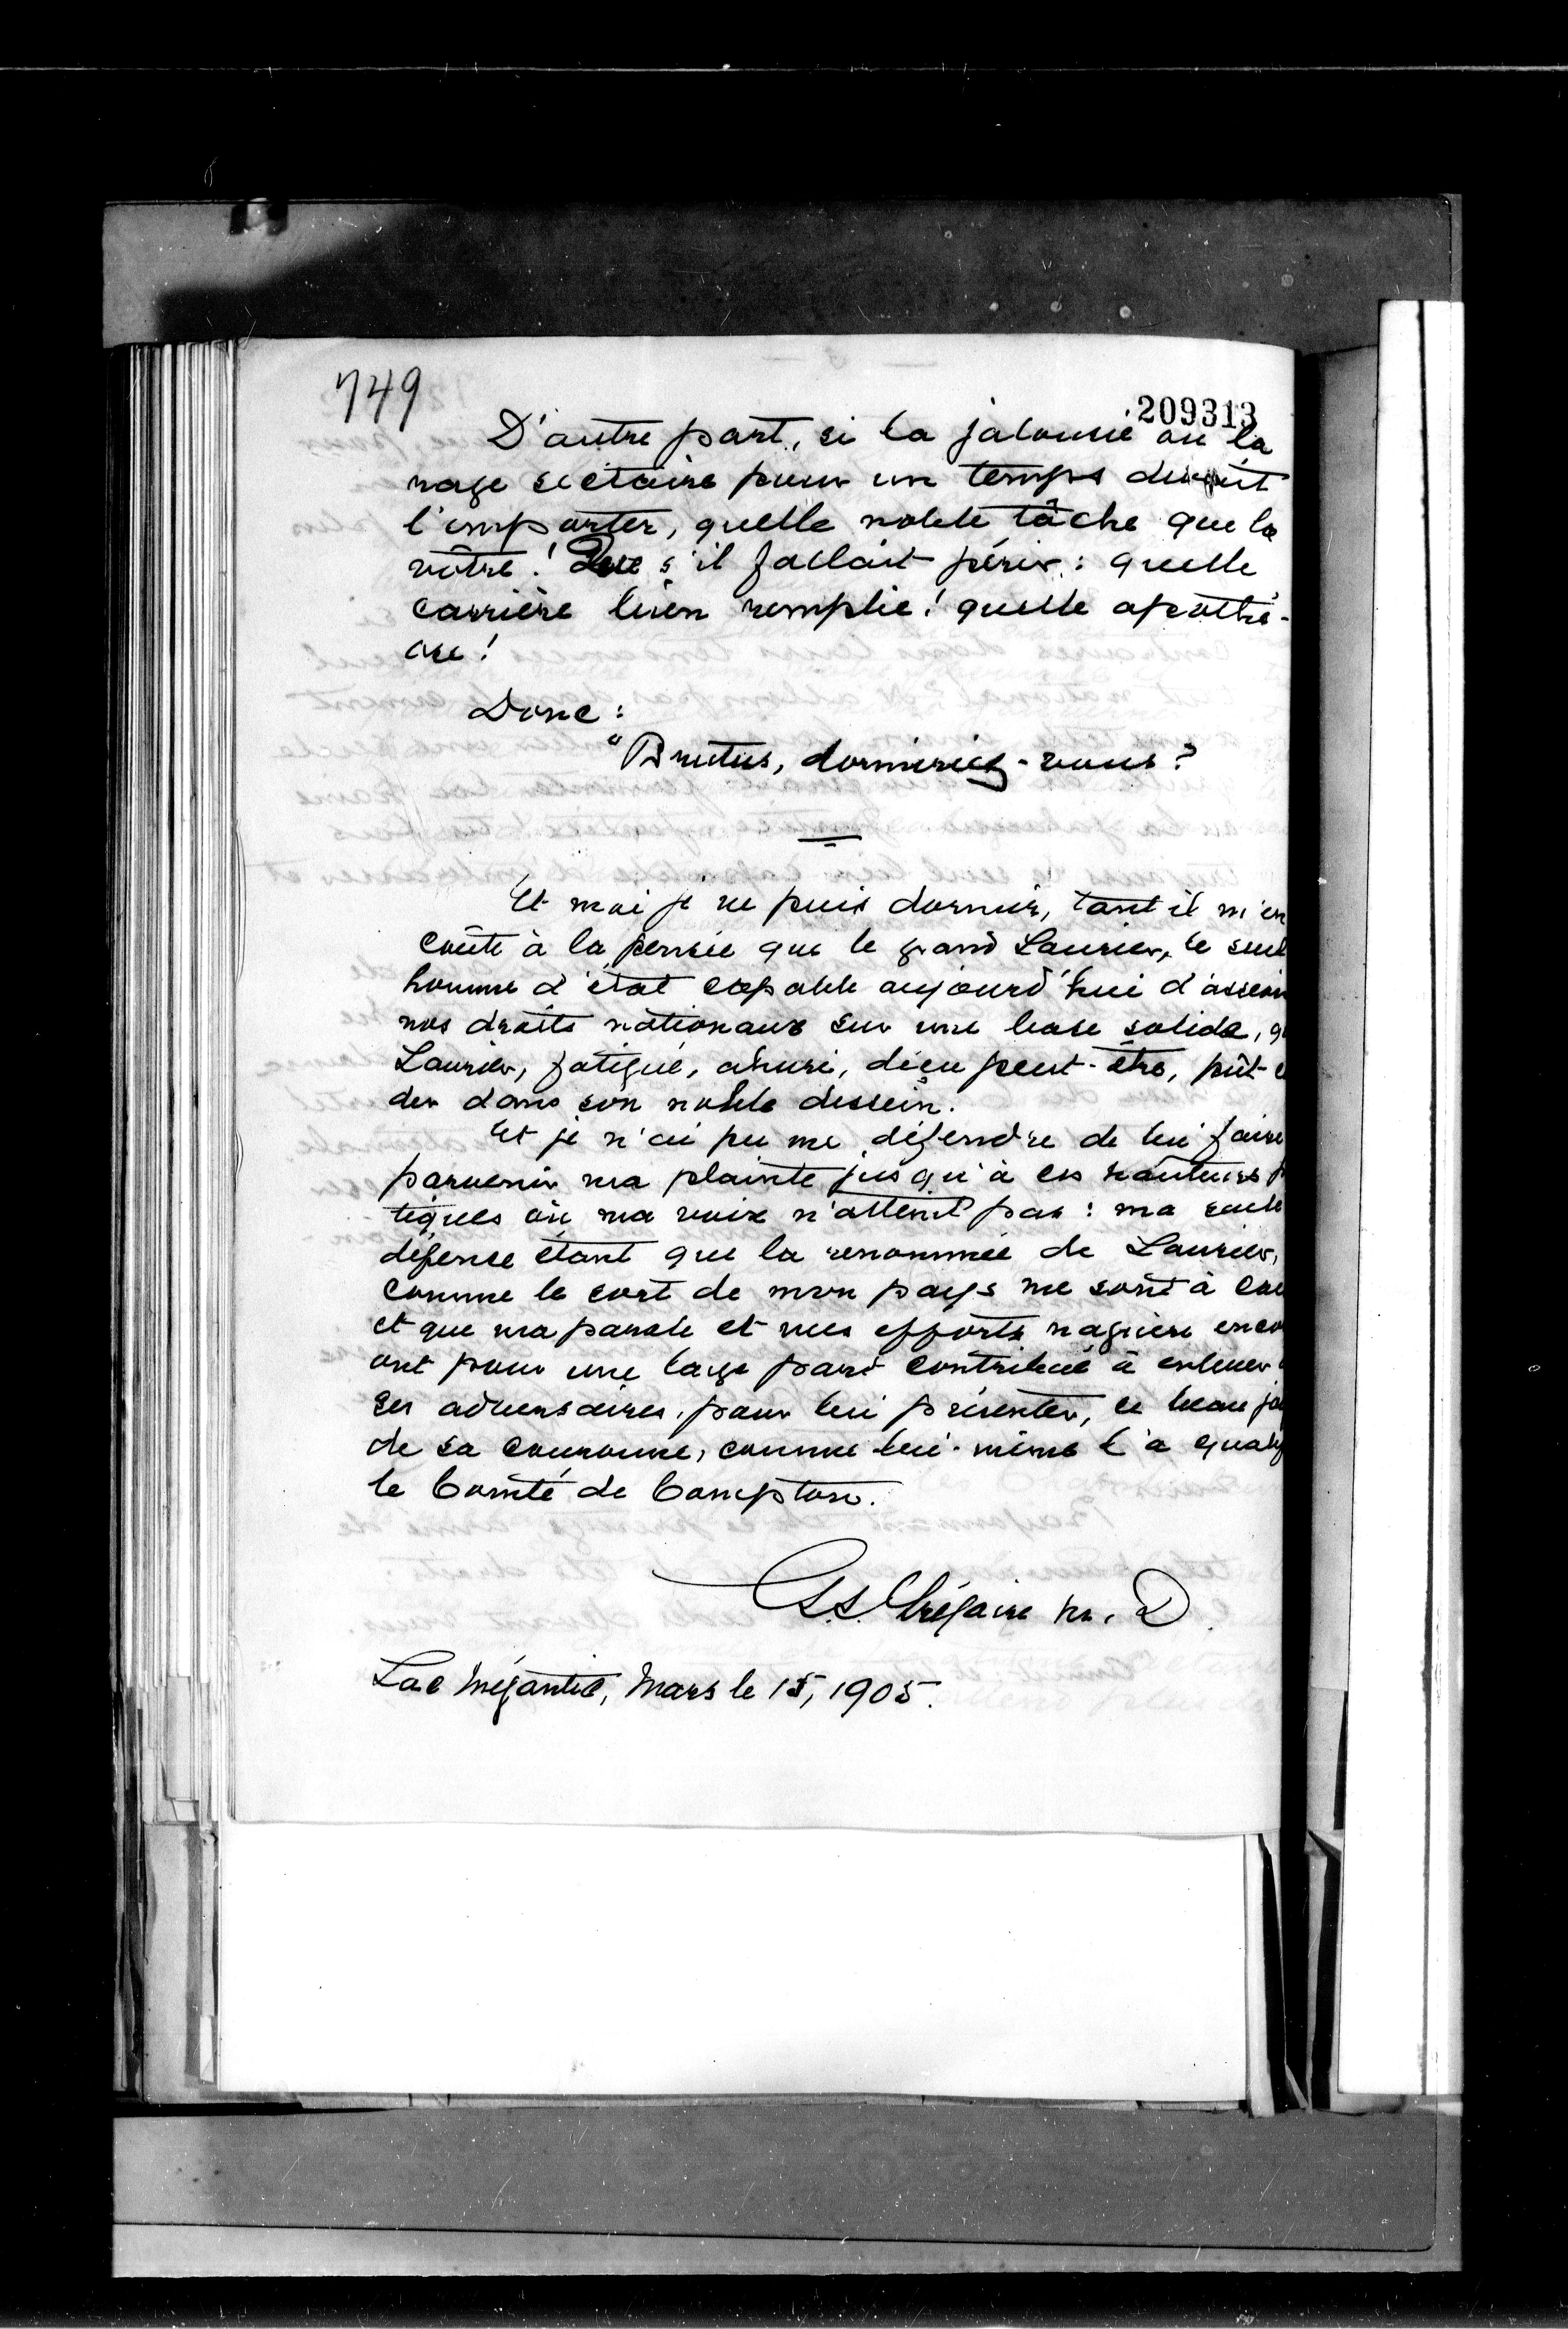 749
209313
D'autre part, si la jalousie ou la
rage sectaire pour un temps devait
l'emporter, quelle noble tâche que la
vôtre! Que s'il fallait périr: quelle
carrière bien remplie! quelle apothé-
ose!
Donc:
"Brutus, dormiriez-vous?
Et moi je ne puis dormir, tant il m'en
coûte à la pensée que le grand Laurier, le seul
homme d'état capable aujourd'hui d'asseoir
nos droits nationaux sur une base solide, q
Laurier, fatigué, ahuri, déçu peut-être, pût c
der dans son noble dessein.
Et je n'ai pu me défendre de lui faire
parvenir ma plainte jusqu'à ces hauteurs p
tiques où ma voix n'atteint pas: ma seule
défense étant que la renommée de Laurier,
comme le sort de mon pays me sont à coe
et que ma parole et mes efforts naguère enco
ont pour une large part contribué à enlever
ses adversaires, pour lui présenter, ce beau jo
de sa couronne, comme lui-même l'a qualif
le Comté de Compton.
Grégoire M. D.
Lac Mégantic, Mars le 15, 1905.